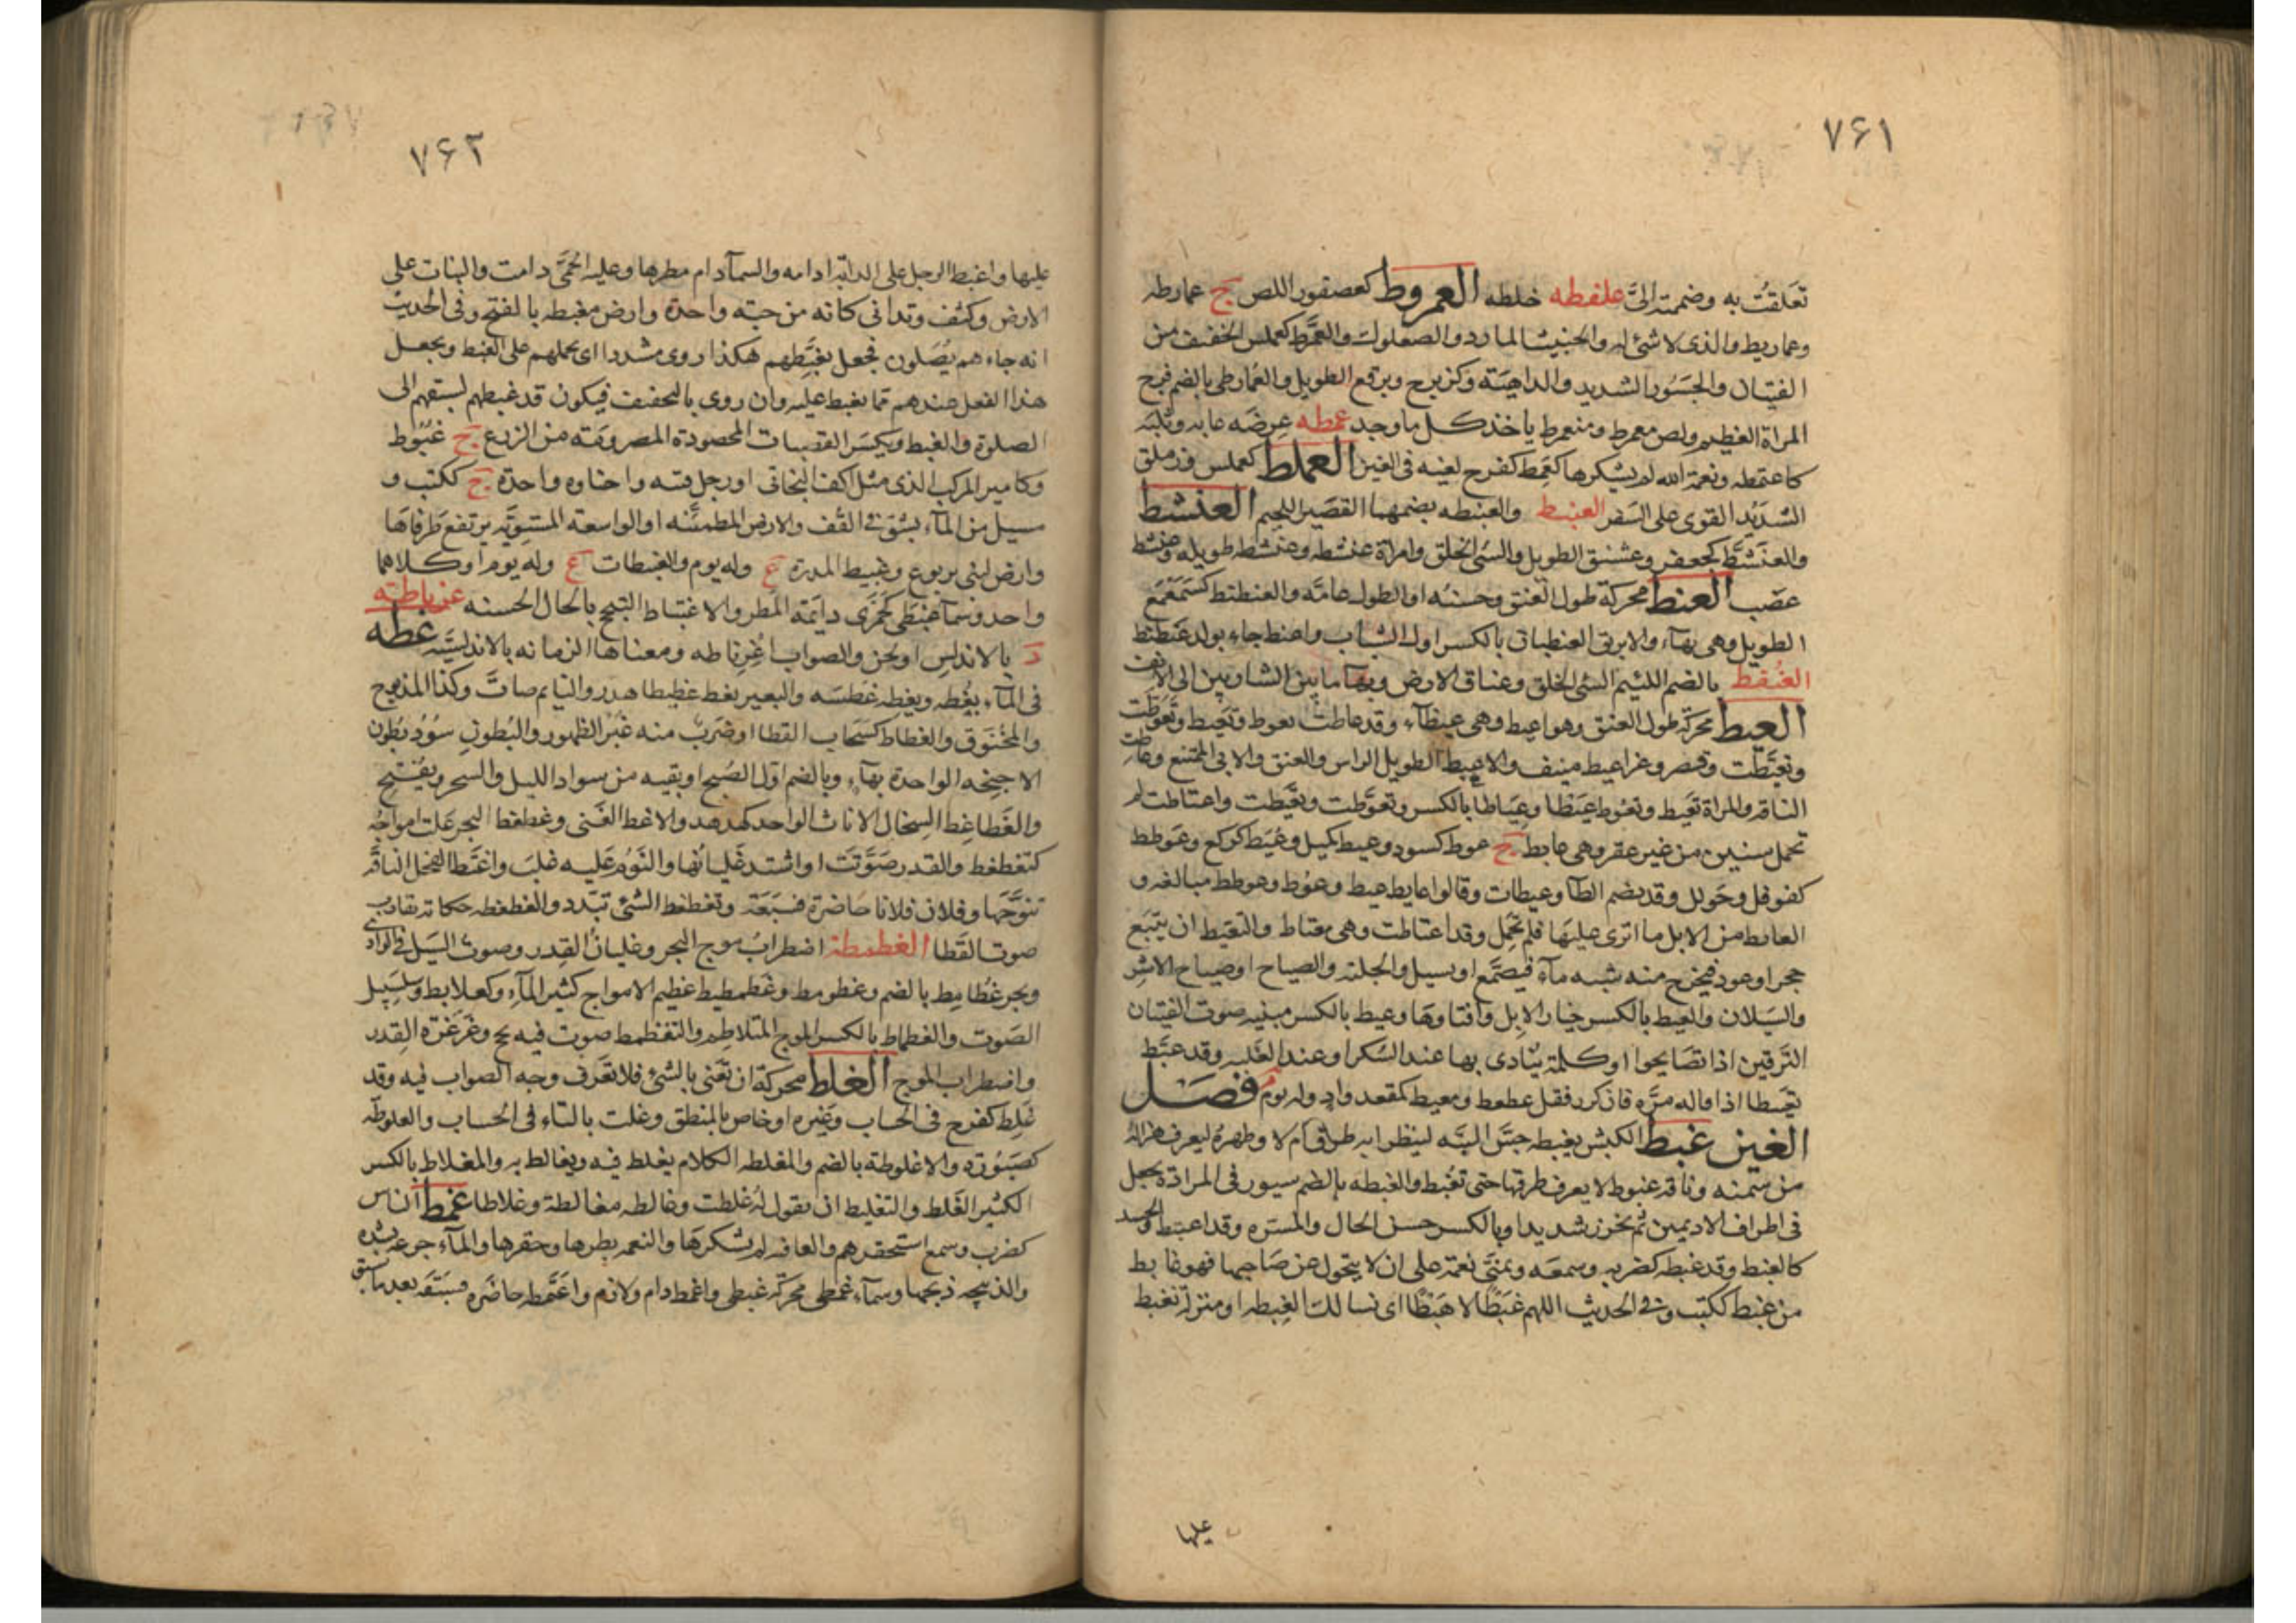 ٧۶١
تعلقت به وضممته الیّ علفطه خلطه العمروط كعصفور اللص ج عمارطه
وعماريط والذى لا شئ له والخبيث المارد والصعلوك والعمرّط كعملس الخفيف من
الفتيان والجسور الشديد والداهية وكزبرج وبرقع الطويل والعمارطى بالضم فرج
المراة العظيم ولص معمرط ومنعمرط ياخذ كل ما وجد عمطه عرضه عابه وثلبه
كاعتمطه ونعمة الله لم يشكرها كعمط كفرح لغيه فى الغين العملط كعملس وزملق
الشديد القوى على السفر العنبط والعنبطه بضمهما القصير اللحيم العنشط
والعنشّط كجعفر وعشنق الطويل والسئ الخلق وامراة عنشطه وعنشط طويله وعنشط
عضب العنط محركة طول العنق وحسنه او الطول عامّه والعنطنط كسمعمع
الطويل وهى بهاء والابريق العنطيان بالكسر اول الشباب واعنط جاء بولد عنطنط
العنقط بالضم اللئيم السئ الخلق وعناق الارض وبهآ ما بين الشاربين الى الانف
العيط محركة طول العنق وهو اعيط وهى عيطآء وقد عاطت تعوط وتعيط وتعوّطت
وتعيّطت وقصر وعز اعيط منيف والاعيط الطويل الراس والعنق والابى الممتنع وعاطت
الناقه والمراة تعيط وتعوط عيطا وعياطا بالكسر وتعوّطت وتعيّطت واعتاطت لم
تحمل سنين من غير عقر وهى عايط ج عوط كسود وعيط كميل وعيّط كركع وعوطط
كفوفل وحولل وقد بضم الطآ وعيطات وقالوا عايط عيط وعوط وعوطط مبالغه و
العايط من الابل ما انزى عليها فلم تحمل وقد اعتاطت وهى معتاط والتعيط ان ينبع
حجر او عود فيخرج منه شبه ماء فيصمّغ او يسيل والجلبة والصياح او صياح الاشر
والسيلان والعيط بالكسر خيار الابل وافتاوها وعيط بالكسر مبنيه صوت الفتيان
النزقين اذا تصايحوا او كلمة ينادى بها عند السكر او عند الغلبه وقد عيّط
تعيطا اذا قاله مرّه فان كرر فقل عطعط ومعيط كمقعد واد وله يوم فصل
الغين غبط الكبش يغبطه جسّ اليته لينظر ابه طرق ام لا وظهره ليعرف هزاله
من سمنه وناقة غبوط لا يعرف طرقها حتى تغبط والغبطه بالضم سيور فى المزادة تجعل
فى اطراف الاديمين ثم يخرز شديدا وبالكسر حسن الحال والمسره وقد اغتبط والحسد
كالغبط وقد غبطه كضربه وسمعه وتمنّى نعمة على ان لا يتحول عن صاحبها فهو غابط
من غبط ككتب وفى الحديث اللهم غبطًا لا هبطًا اى نسالك الغبطه او منزلة نغبط
عليها
٧۶٢
عليها واغبط الرحل على الدابّه ادامه والسمآ دام مطرها وعليه الحمّى دامت والنبات على
الارض وكثف وتدانى كانه من حبّه واحدة وارض مغبطه بالفتح وفى الحديث
انه جاء هم يصلون فجعل يغبّطهم هكذا روى مشددا اى يحملهم على الغبط ويجعل
هذا الفعل عندهم مما يغبط عليه وان روى بالتخفيف فيكون قد غبطهم لسبقهم الى
الصلوة والغبط ويكسر القبضات المحصودة المصرومة من الزرع ج غبوط
وكامير المركب الذى مثل اكف البخاتى او رحل قتبه واحناوه واحدة ج ككتب و
مسيل من المآء يشق فى القف والارض المطمئنّه او الواسعة المستويّه يرتفع طرفاها
وارض لبنى يربوع وغبيط المدرة ع وله يوم والغبيطان ع وله يوم او كلاهما
واحد وسمآ غبطى كجمزى دايمة المطر والاغتباط التبجح بالحال الحسنه غرناطته
د بالاندلس او لحن والصواب اغرناطه ومعناها الرمانه بالاندلسيّه غطه
فى المآء يغطه ويغطه غطسه والبعير يغط غطيطا هدر والنايم صاتَ وكذا المذبوح
والمخنوق والغطاط كسحاب القطا او ضرب منه غبر الظهور والبطون سود بطون
الاجنحه الواحدة بهآء وبالضم اول الصبح او بقيه من سواد الليل والسحر ويفتح
والغطاغط السخال الاناث الواحد كهدهد والاغط الغنى وغطغط البحر علت امواجه
كتغطغط والقدر صوّتت او اشتد غليانها والنوم عليه غلب واغتط الفحل الناقه
تنوّخها وفلان فلانا حاضرة فسبقه وتغطغط الشئ تبدد والغطغطه حكاية تقارب
صوت القطا الغطمطة اضطراب موج البحر وغليان القدر وصوت السيل فى الوادى
وبحر غطامط بالضم وغطومط وغطمطيط عظيم الامواج كثير المآء وكعلابط وسلسبيل
الصوت والغطماط بالكسر الموج المتلاطم والتغطمط صوت فيه بح وغرغرة القدر
واضطراب الموج الغلط محركة ان تعى بالشئ فلا تعرف وجه الصواب فيه وقد
غلط كفرح فى الحساب وغيره او خاص بالمنطق وغلت بالتاء فى الحساب والغلوطه
كصبورة والاغلوطة بالضم والمغلطه الكلام يغلط فيه ويغالط به والمغلاط بالكسر
الكثير الغلط والتغليط ان يقول له غلطت وغالطه مغالطة وغلاطا غمط الناس
كضرب وسمع استحقرهم والعافيه لم يشكرها والنعمه بطرها وحقرها والمآء جرعه بشده
والذبيحه ذبحها وسمآء غمطى محركة غبطى واغمط دام ولازم واغتمطه حاضره فسبقه بعد ما سبق